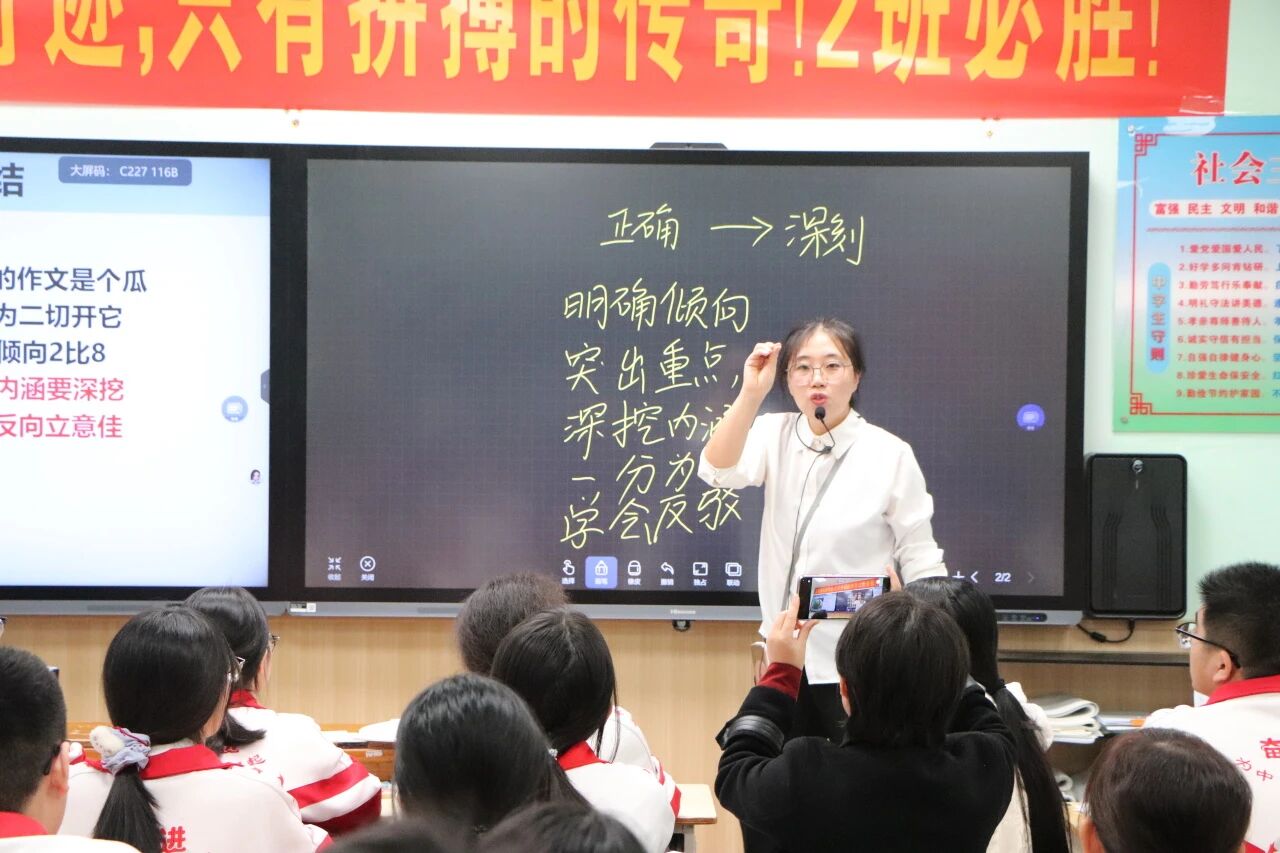 迹,只有拼搏的传奇!2班必胜!
结
大屏码: C227 116B
的作文是个瓜
为二切开它
倾向2比8
内涵要深挖
反向立意佳
正确 → 深刻
明确倾向
突出重点,
深挖内涵
一分为
学会反驳
收起 关闭
选择 画笔 橡皮 撤销 独占 联动
2/2
Hisense
社会
富强 民主 文明 和谐
中学生守则
1.爱党爱国爱人民、
2.好学多问肯钻研、
3.勤劳笃行乐奉献、
4.明礼守法讲美德、
5.孝亲尊师善待人、
6.诚实守信有担当、
7.自强自律健身心、
8.珍爱生命保安全、
9.勤俭节约护家园、
起
进
奋